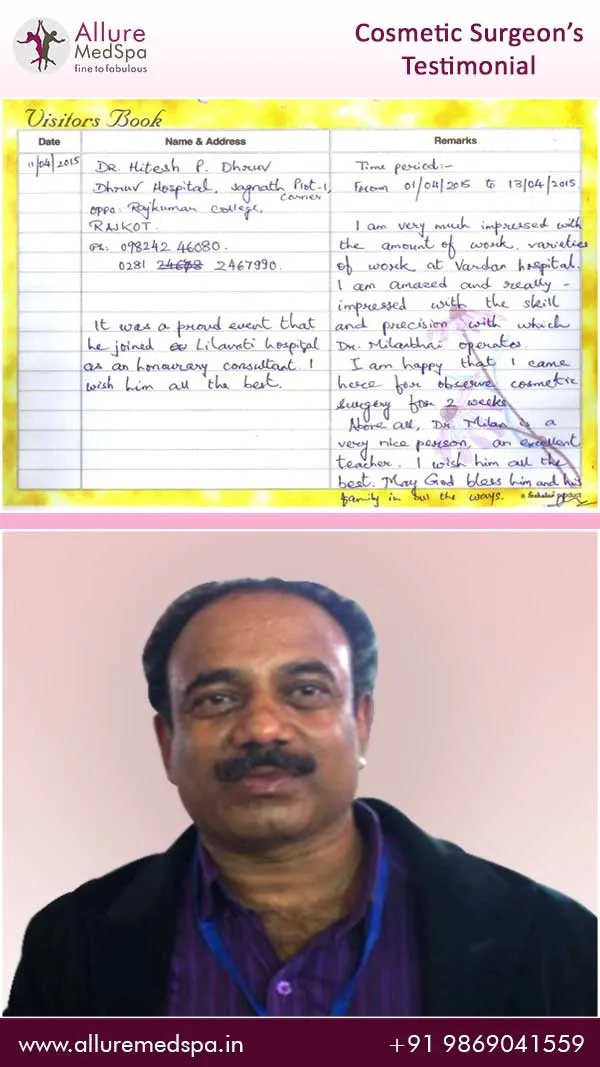 Allure
MedSpa
fine to fabulous
Cosmetic Surgeon's
Testimonial
Visitors Book
Date
Name & Address
Remarks
11/04/2015
DR. Hitesh P. Dhruv
Dhruv Hospital, Jagnath Plot-1,
corner
oppo: Rajkumar college,
RAJKOT.
Ph: 098242 46080.
0281 2467990.
It was a proud event that
he joined Lilavati hospital
as an honourary consultant. I
wish him all the best.
Time period:-
From 01/04/2015 to 13/04/2015
I am very much impressed with
the amount of work, varieties
of work at Vardan hospital.
I am amazed and really -
impressed with the skill
and precision with which
Dr. Milanbhai operates.
I am happy that I came
here for observe cosmetic
surgery for 2 weeks.
Above all, Dr. Milan is a
very nice person, an excellent
teacher. I wish him all the
best. May God bless him and his
family in all the ways.
a Scholar product
www.alluremedspa.in
+91 9869041559